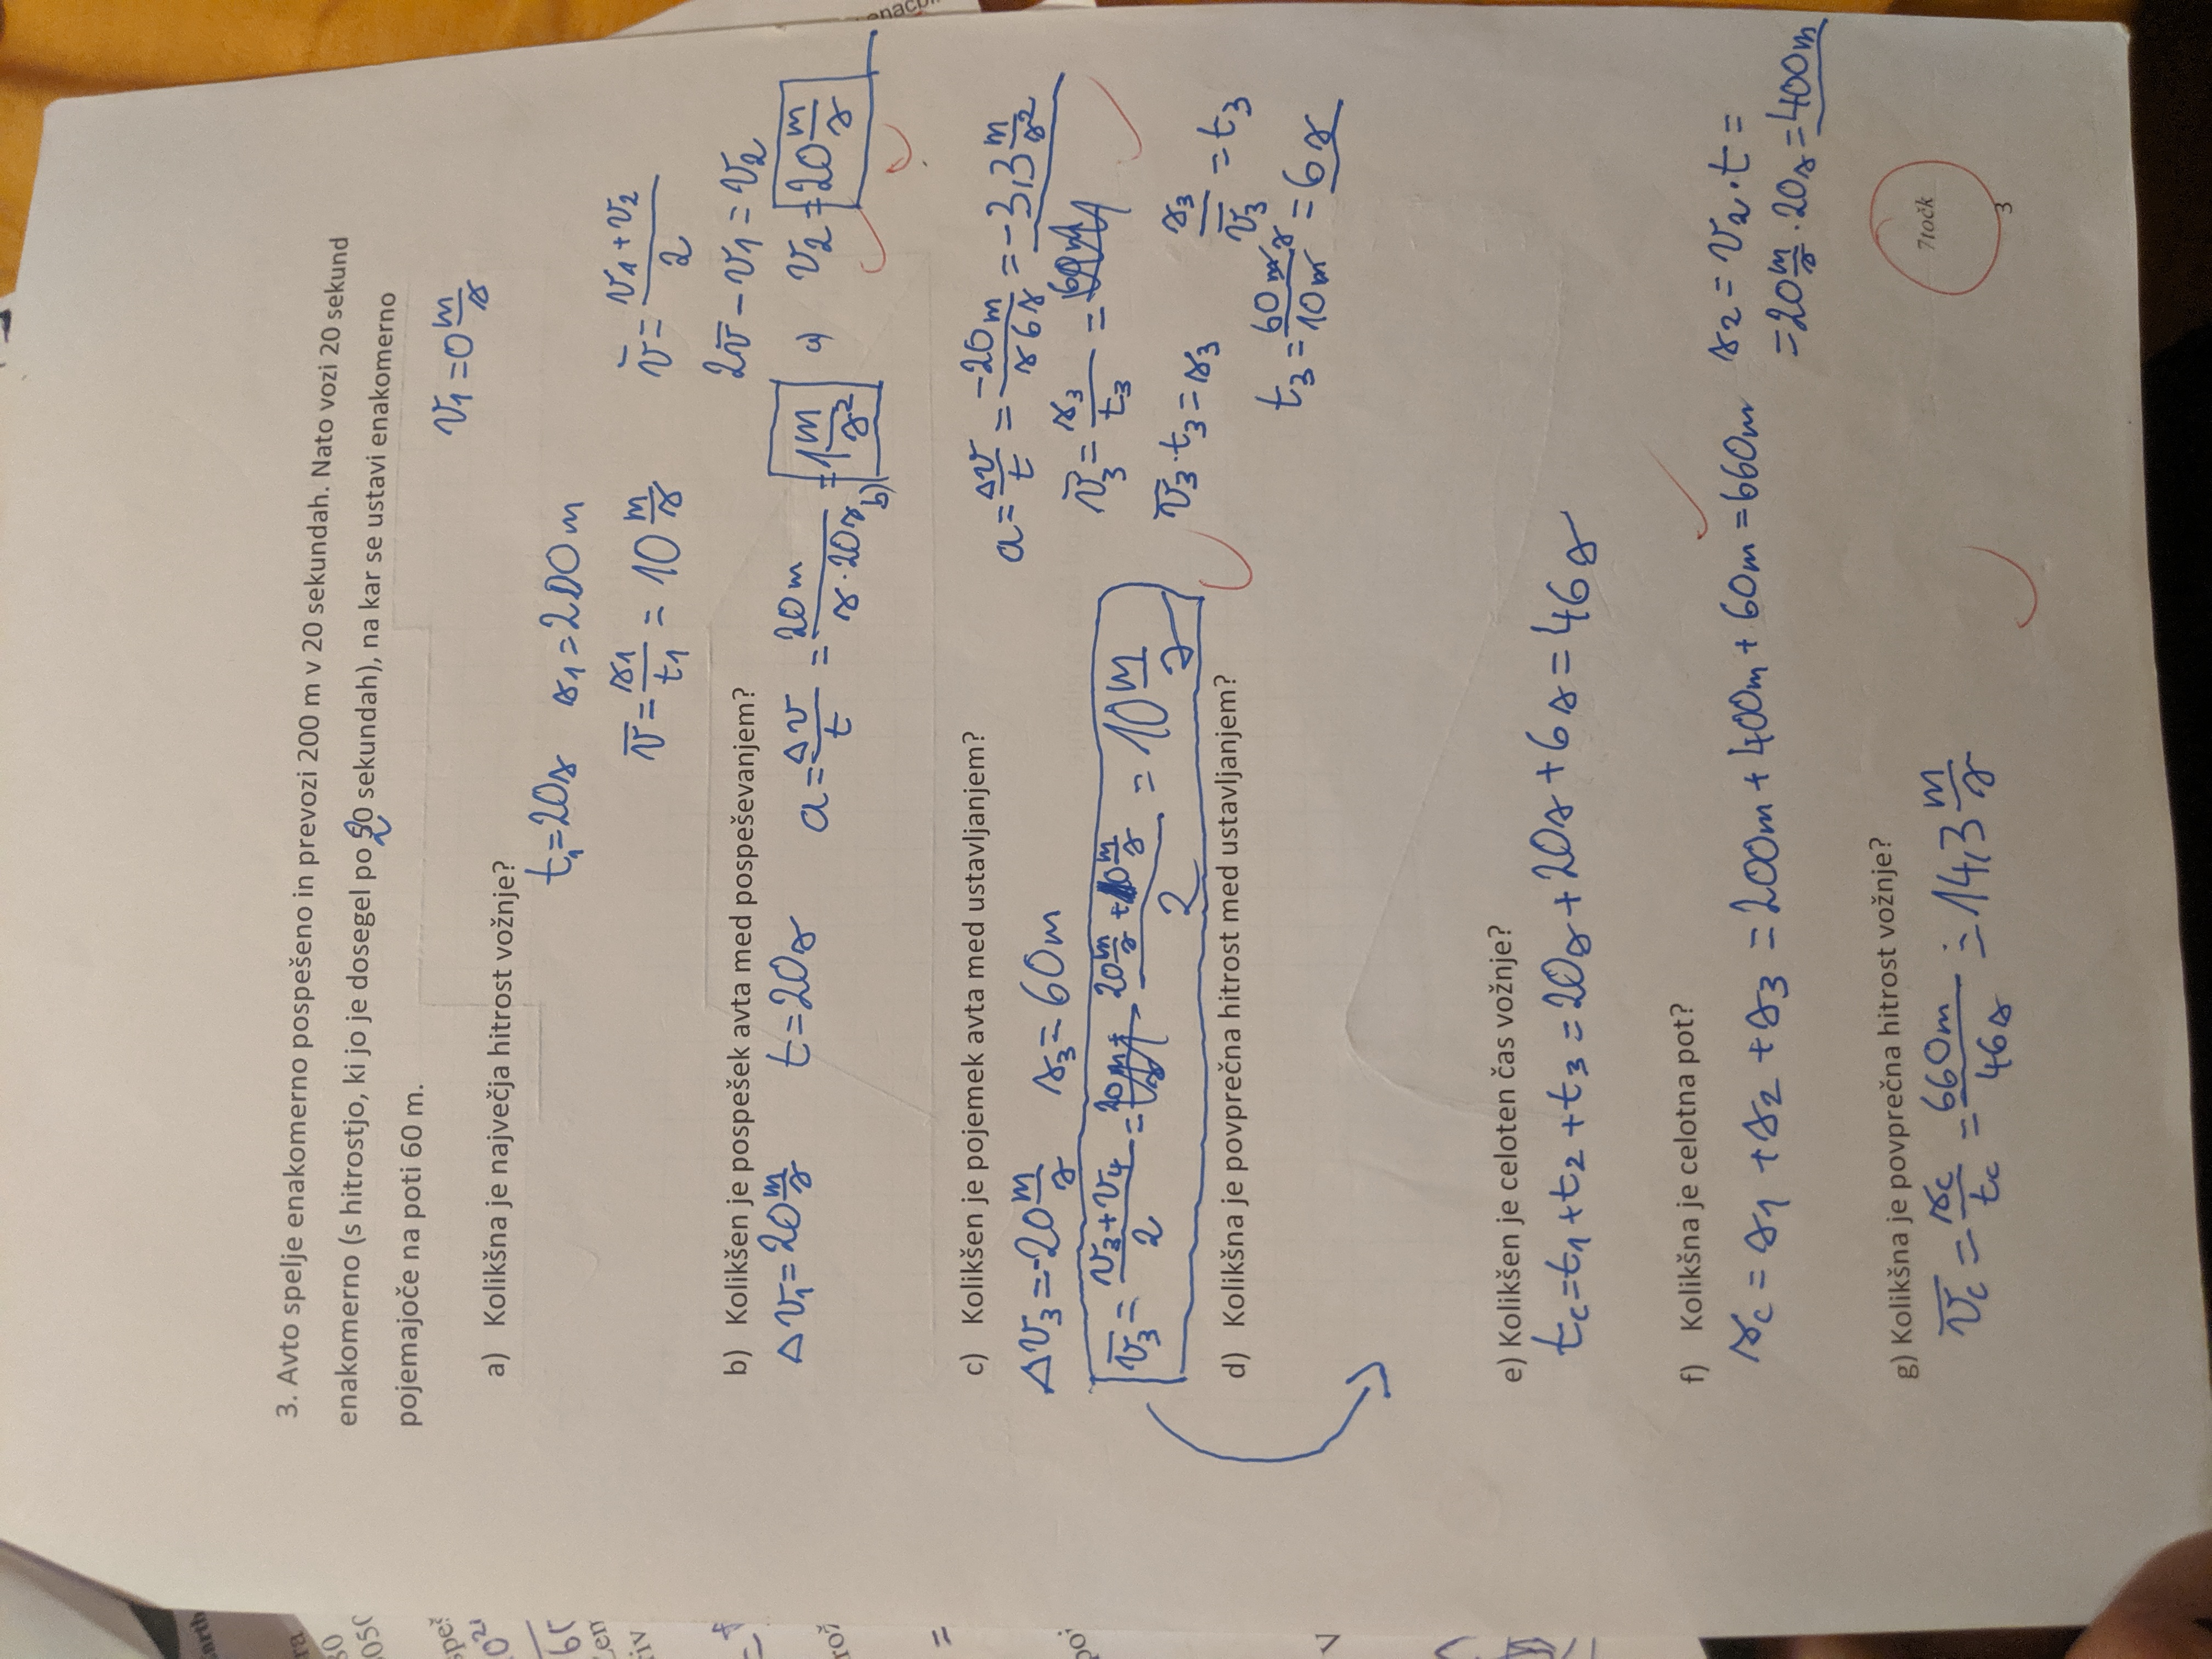 3. Avto spelje enakomerno pospešeno in prevozi 200 m v 20 sekundah. Nato vozi 20 sekund
enakomerno (s hitrostjo, ki jo je dosegel po 20 sekundah), na kar se ustavi enakomerno
pojemajoče na poti 60 m.
v₁ = 0 m/s
a) Kolikšna je največja hitrost vožnje?
t₁ = 20s s₁ = 200m
v̅ = s₁/t₁ = 10 m/s v̅ = (v₁ + v₂)/2
2v̅ - v₁ = v₂
b) Kolikšen je pospešek avta med pospeševanjem?
Δv₁ = 20 m/s t = 20s a = Δv/t = 20m/(s·20s) = b) 1 m/s² a) v₂ = 20 m/s
c) Kolikšen je pojemek avta med ustavljanjem?
a = Δv/t = -20m/(s 6s) = -3,3 m/s²
Δv₃ = -20 m/s s₃ = 60m
v̅₃ = s₃/t₃ = 60m
v̅₃ = (v₃ + v₄)/2 = (20 m/s + 0 m/s)/2 = 10 m/s
v̅₃ · t₃ = s₃ s₃/v̅₃ = t₃
d) Kolikšna je povprečna hitrost med ustavljanjem?
t₃ = 60 m s/10 m = 6s
e) Kolikšen je celoten čas vožnje?
t_c = t₁ + t₂ + t₃ = 20s + 20s + 6s = 46s
f) Kolikšna je celotna pot?
s_c = s₁ + s₂ + s₃ = 200m + 400m + 60m = 660m
s₂ = v₂ · t =
= 20 m/s · 20s = 400m
g) Kolikšna je povprečna hitrost vožnje?
v̅_c = s_c/t_c = 660m/46s ≐ 14,3 m/s
7točk
3